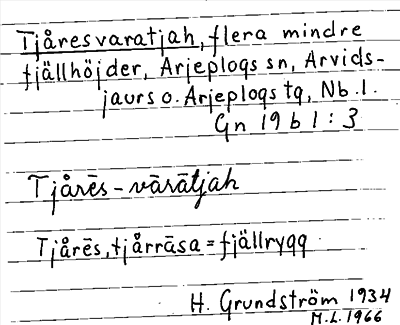 Tjåresvaratjah, flera mindre
fjällhöjder, Arjeplogs sn, Arvids-
jaurs o. Arjeplogs tg, Nb. l.
Gn 19 b 1 : 3
Tjårēs-vārātjah
Tjårēs, tjårrāsa = fjällrygg
H. Grundström 1934
M.L. 1966